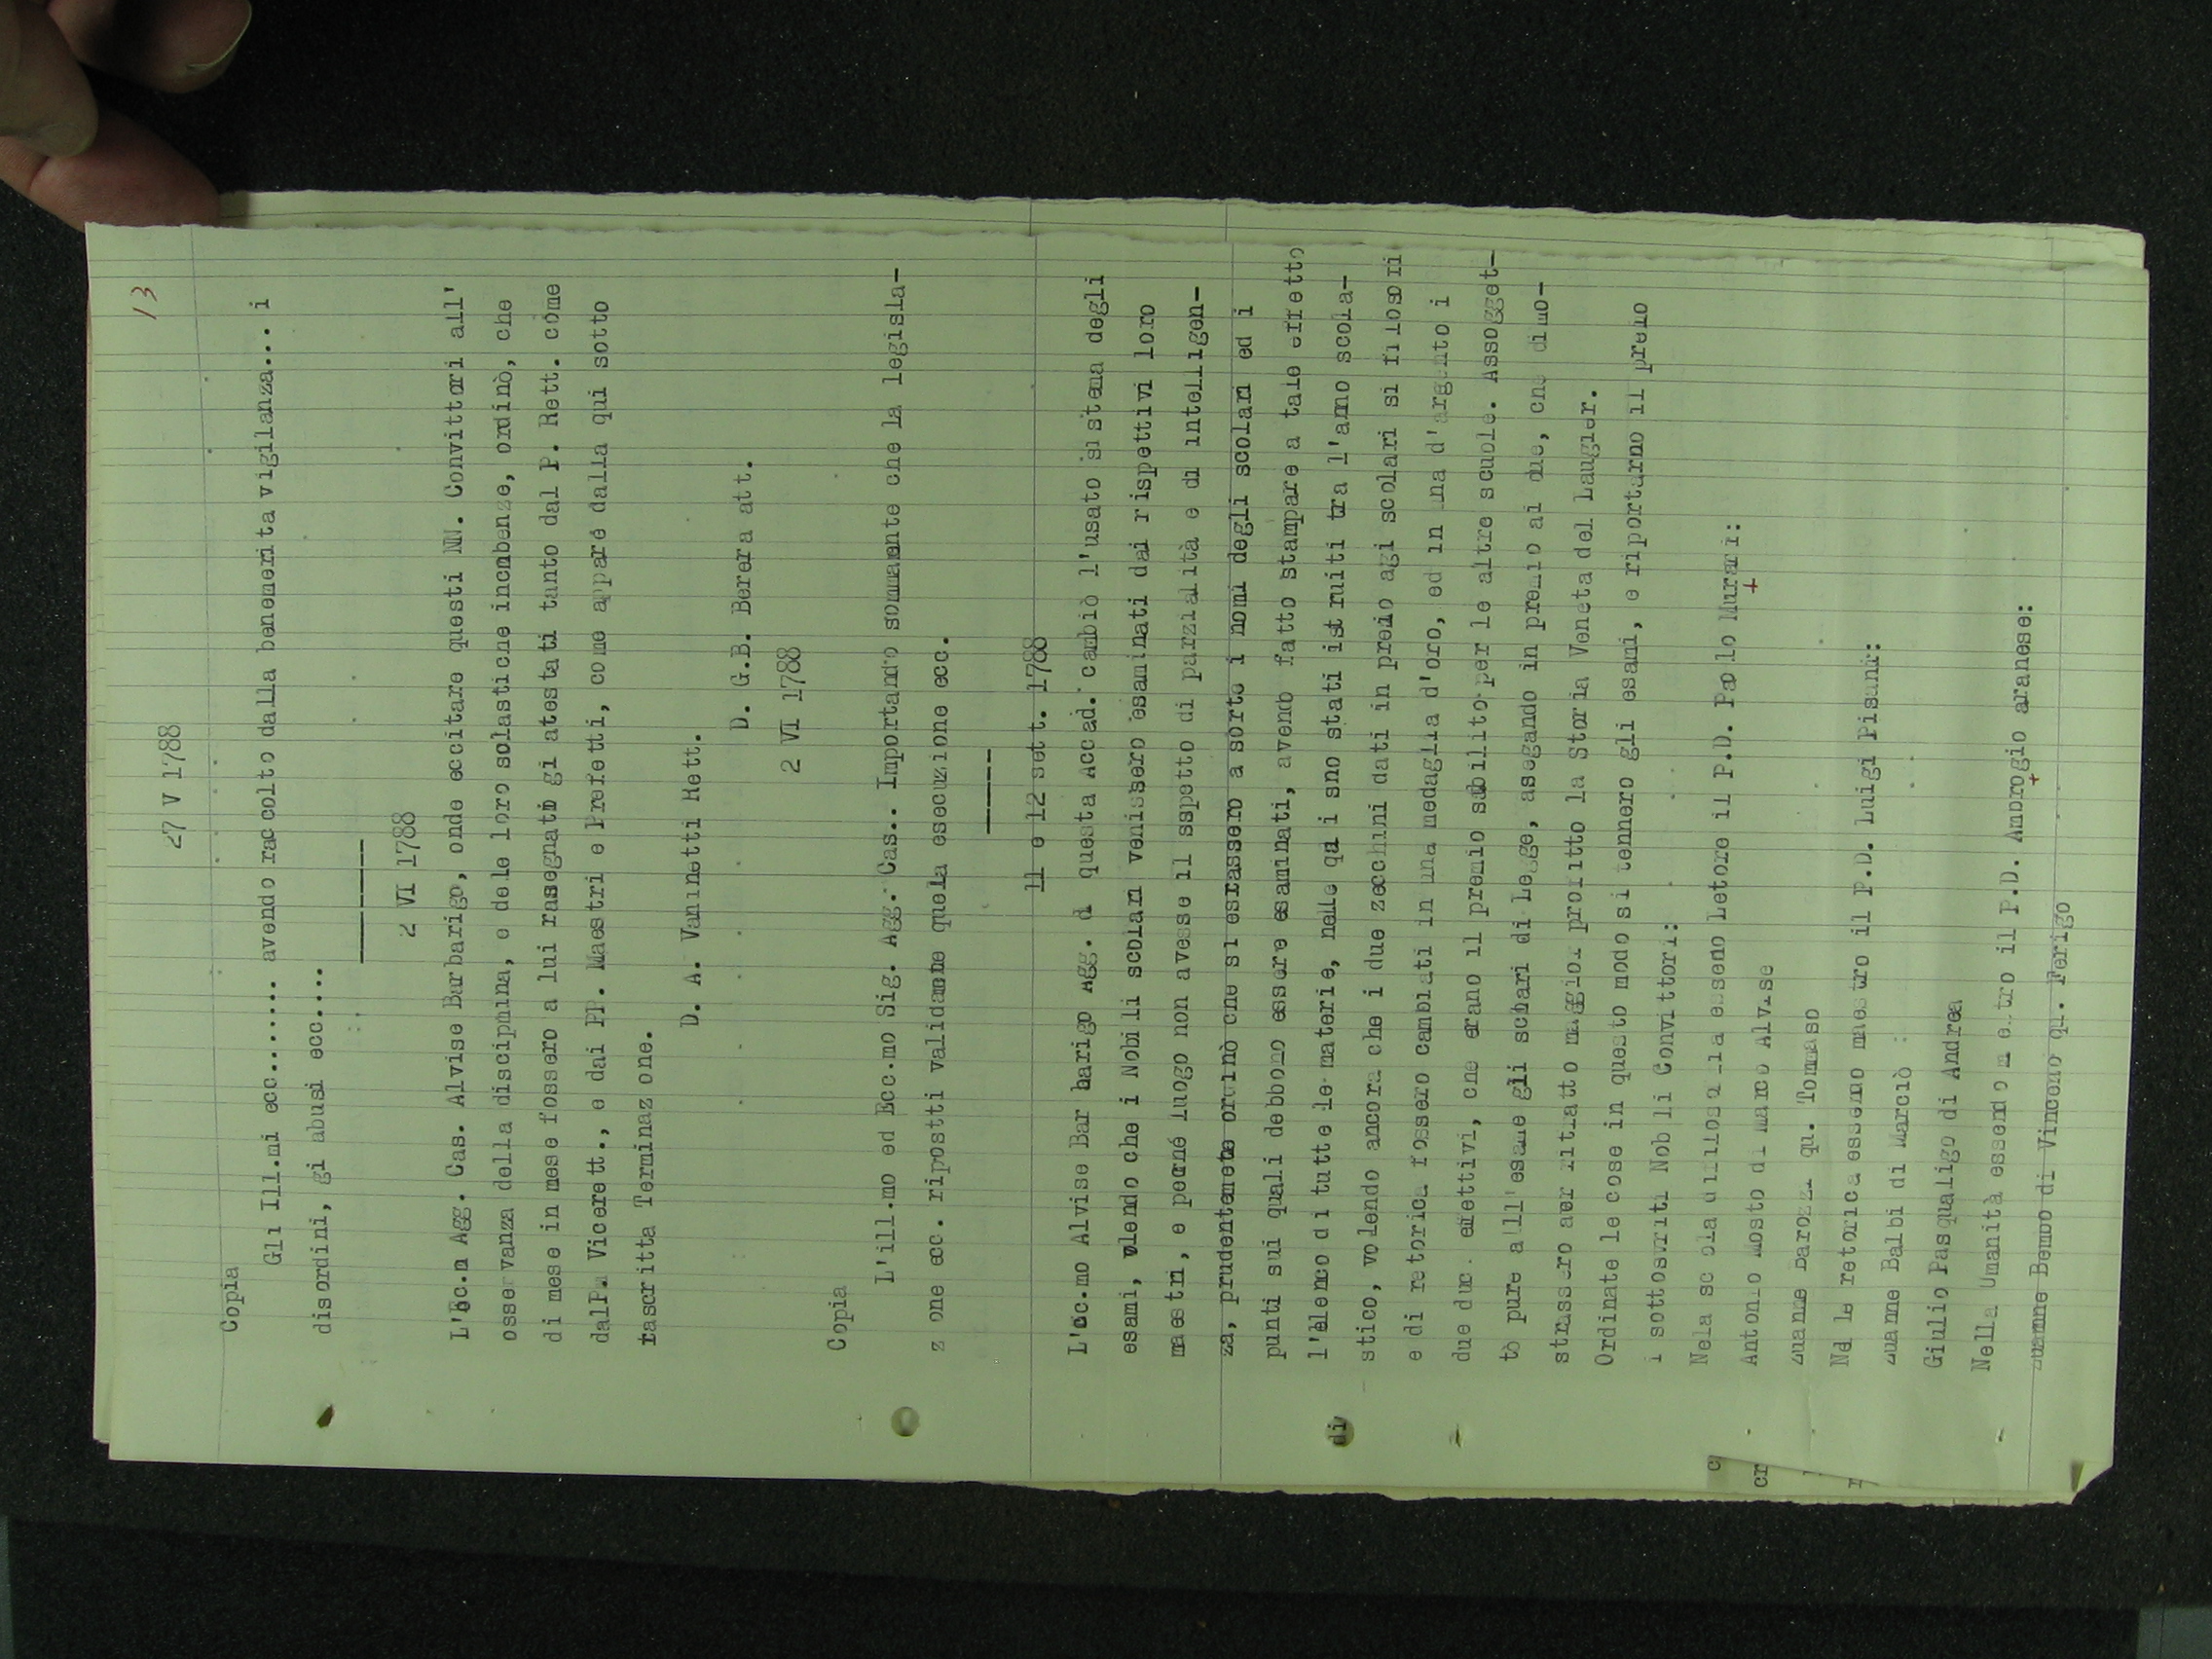 13
27 V 1788
Copia
Gli Ill.mi ecc........ avendo raccolto dalla benemerita vigilanza... i
disordini, gi abusi ecc....
2 VI 1788
L'Ec.m Agg. Cas. Alvise Barbarigo, onde eccitare questi NN. Convittori all'
osservanza della disciplina, e dele loro solastiche incmbenze, ordinò, che
di mese in mese fossero a lui rasegnati gi atestati tanto dal P. Rett. come
dalP. Vicerett., e dai PP. Maestri e Prefetti, come appare dalla qui sotto
tascritta Terminaz one.
D. A. Vaninetti Rett.
D. G.B. Berera att.
2 VI 1788
Copia
L'ill.mo ed Ecc.mo Sig. Agg. Cas.. Importando sommamente che la legisla-
z one ecc. ripostti validamte quela esecuzione ecc.
11 e 12 sett. 1788
L'ec.mo Alvise Bar barigo Agg. d questa Accad. cambiò l'usato sistema degli
esami, vlendo che i Nobili scolari venissero esaminati dai rispettivi loro
maestri, e perché luogo non avesse il sspetto di parzialità e di intelligen-
za, prudentemete ordinò che si estrassero a sorte i nomi degli scolari ed i
punti sui quali debbono essere esaminati, avendo fatto stampare a tale effetto
l'elenco di tutte le materie, nelle qa i sno stati istruiti tra l'anno scola-
di
stico, volendo ancora che i due zecchini dati in premio agi scolari si filosofi
e di retorica fossero cambiati in una medaglia d'oro, ed in una d'argento i
due duc. effettivi, che erano il premio sabilito per le altre scuole. Assogget-
tò pure all'esame gli scolari di Legge, asegando in premio ai due, che dimo-
strassero aver ritratto maggior profitto la Storia Veneta del Laugier.
Ordinate le cose in questo modo si tennero gli esami, e riportarno il premo
i sottoscriti Nob li Convittori:
Nela sc ola di filosofia essendo Letore il P.D. Paolo Murari:
Antonio Mosto di Marco Alvise
Zuanne Barozzi qu. Tommaso
Nel la retorica essendo maestro il P.D. Luigi Pisani:
Zuanne Balbi di Marciò
Giulio Pasqualigo di Andrea
Nella Umanità essendo m estro il P.D. Ambrogio aranese:
Zuanne Bembo di Vinceno qu. Ferigo